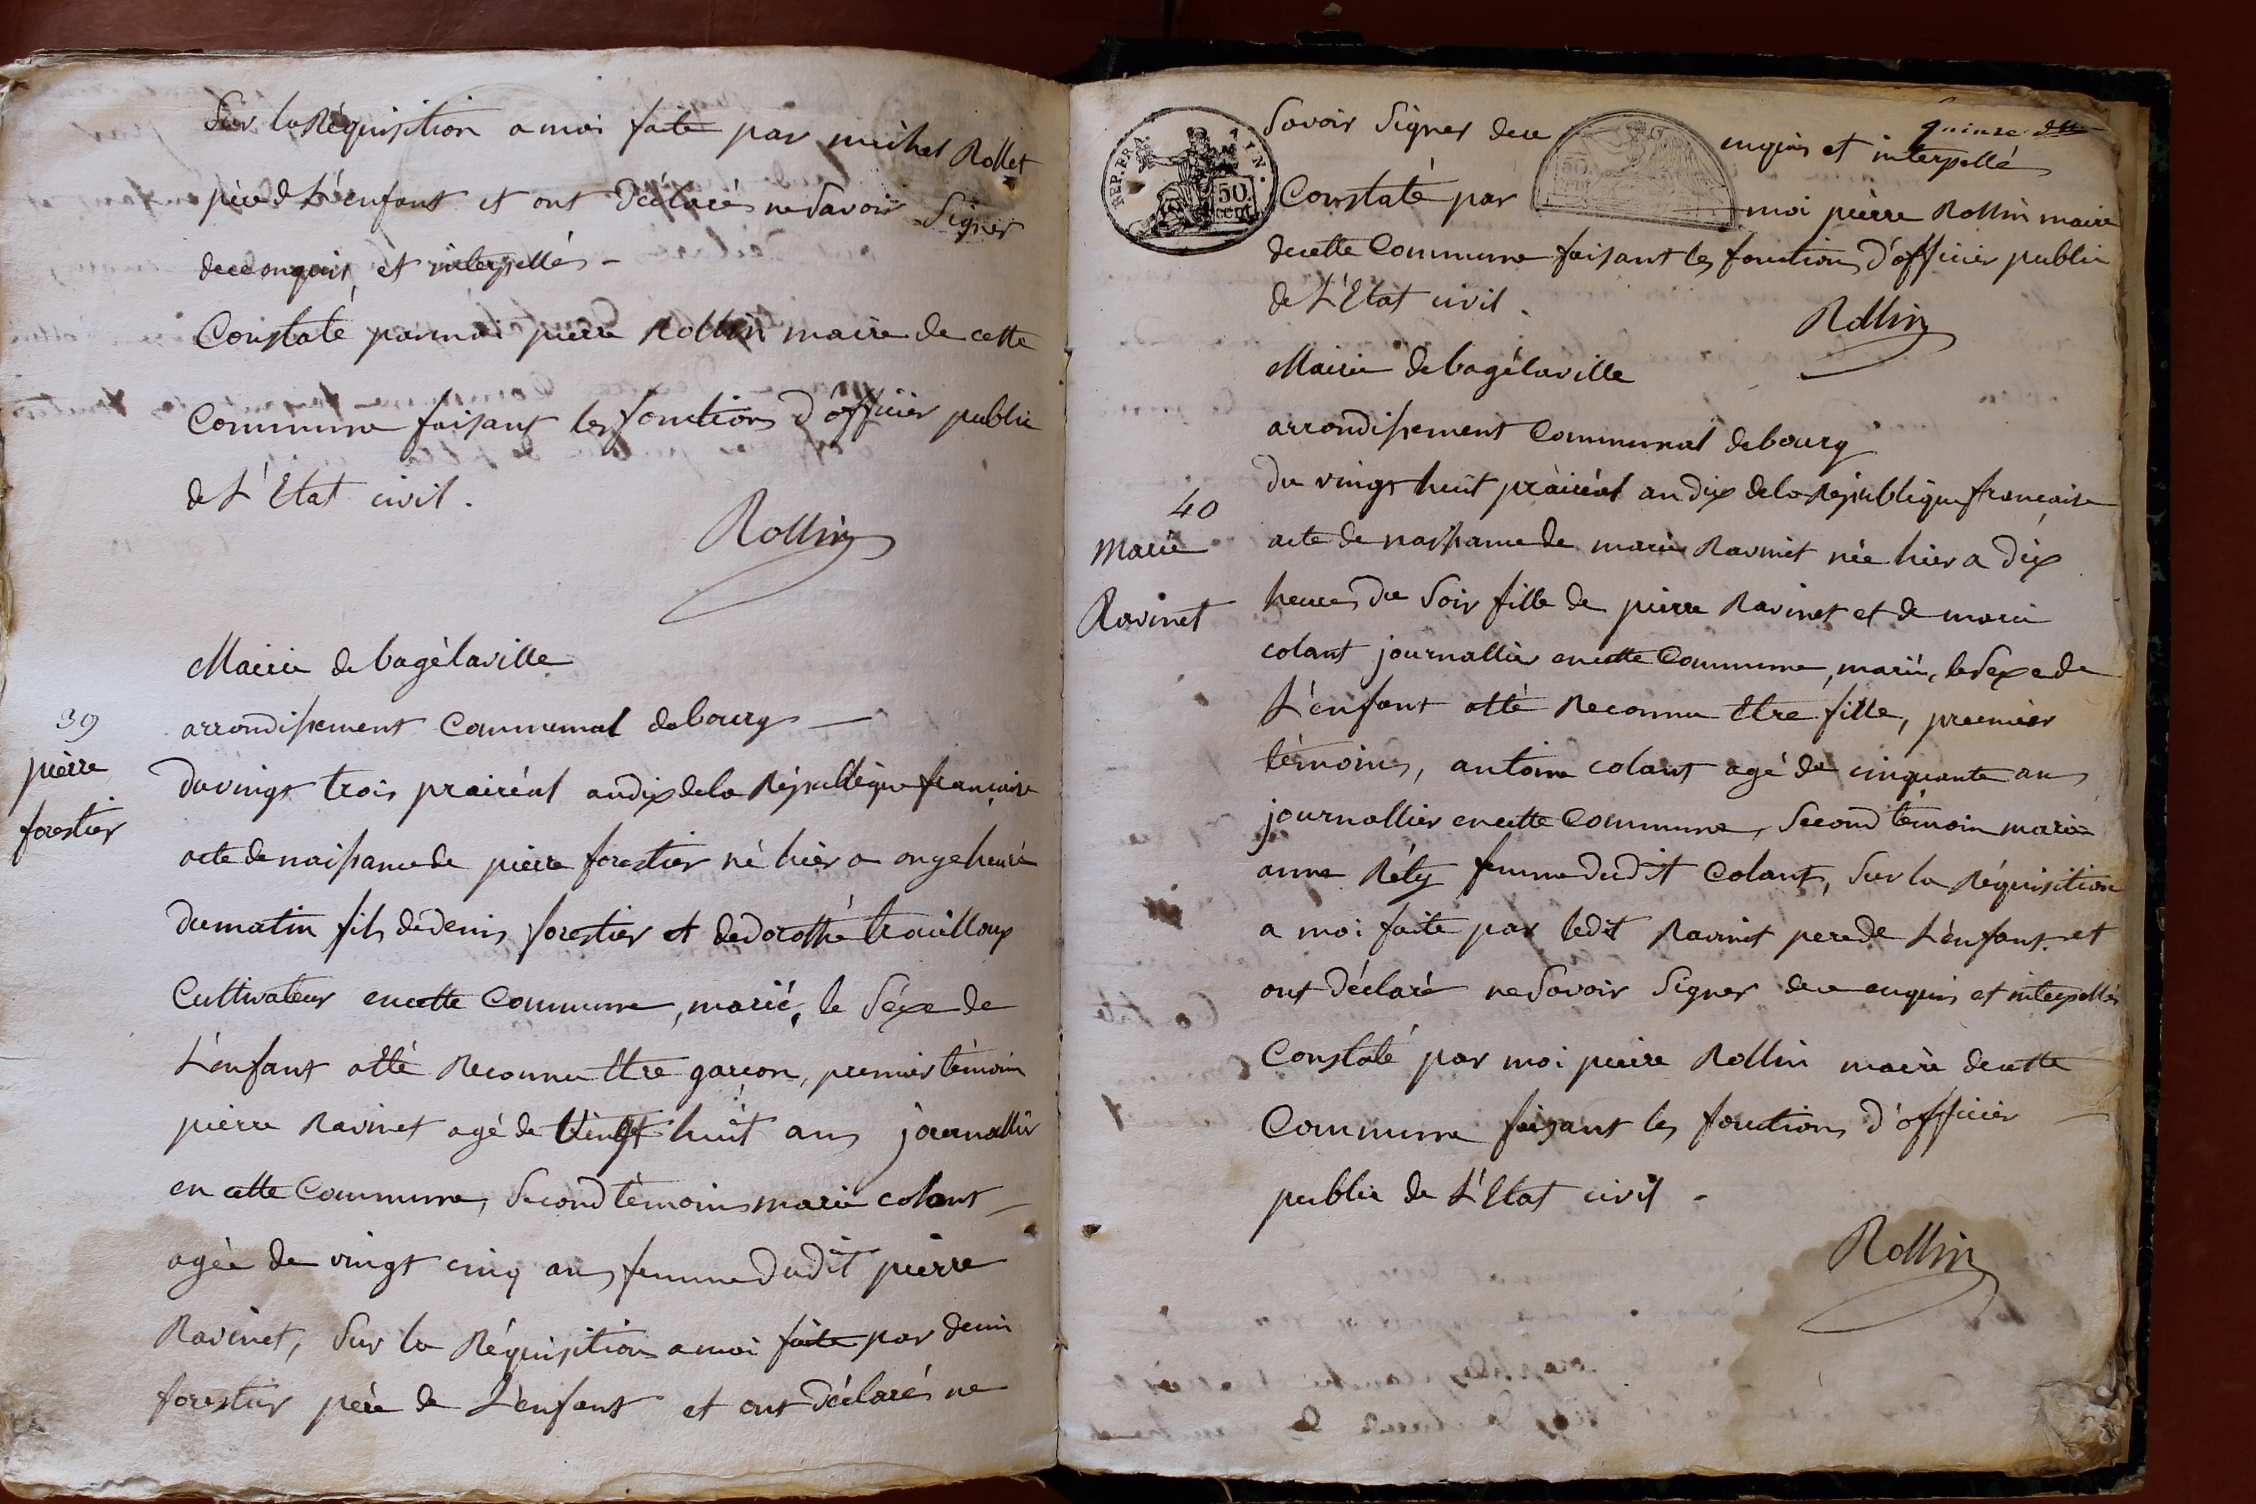 Sur la Réquisition a moi faite par michel Rollet
père de L'énfant et ont Déclarés ne Savoir Signer
de ce enquis, et interpellés -
Constaté par moi pierre Rollin maire de cette
Commune faisant les fonctions d'officier public
de L'Etat civil.
Rollin
Mairie de bagélaville
arrondissement Communal de bourg -
39
pierre
forestier
Du vingt trois prairéal an dix de la République française
acte de naissance de pierre forestier né hier a onze heure
du matin fils de denis forestier et de dorothé trouilloux
Cultivateur en cette Commune, marié, le Séxe de
L'énfant a été Reconnu être garcon, premier témoin
pierre Ravinet agé de Vingt huit ans journallier
en cette Commune, Second témoins marie colant -
agée de vingt cinq ans femme dudit pierre
Ravinet, Sur la Réquisition a moi faite par denis
forestier père de L'énfant et ont déclarés ne
quinze
REP. FRA.
50
cent
Savoir Signer de ce enquis et interpellé
Constaté par moi pierre Rollin maire
de cette Commune faisant les fonctions d'officier public
de L'Etat civil.
Rollin
Mairie de bagélaville
arrondissement Communal de bourg
40
Marie
Ravinet
Du vingt huit prairéal an dix de la République francaise
acte de naissance de marie Ravinet née hier a dix
heures du Soir fille de pierre Ravinet et de marie
colant journallier en cette Commune, marié, le Sexe de
L'énfant a été Reconnu être fille, premier
témoins, antoine colant agé de cinquante ans
journallier en cette Commune, Second témoin marie
anne Réty femme dudit Colant, Sur la Réquisition
a moi faite par ledit Ravinet pere de L'énfant et
ont déclaré ne Savoir Signer de ce enquis et interpellés
Constaté par moi pierre Rollin maire de cette
Commune faisant les fonctions d'officier
public de L'Etat civil -
Rollin